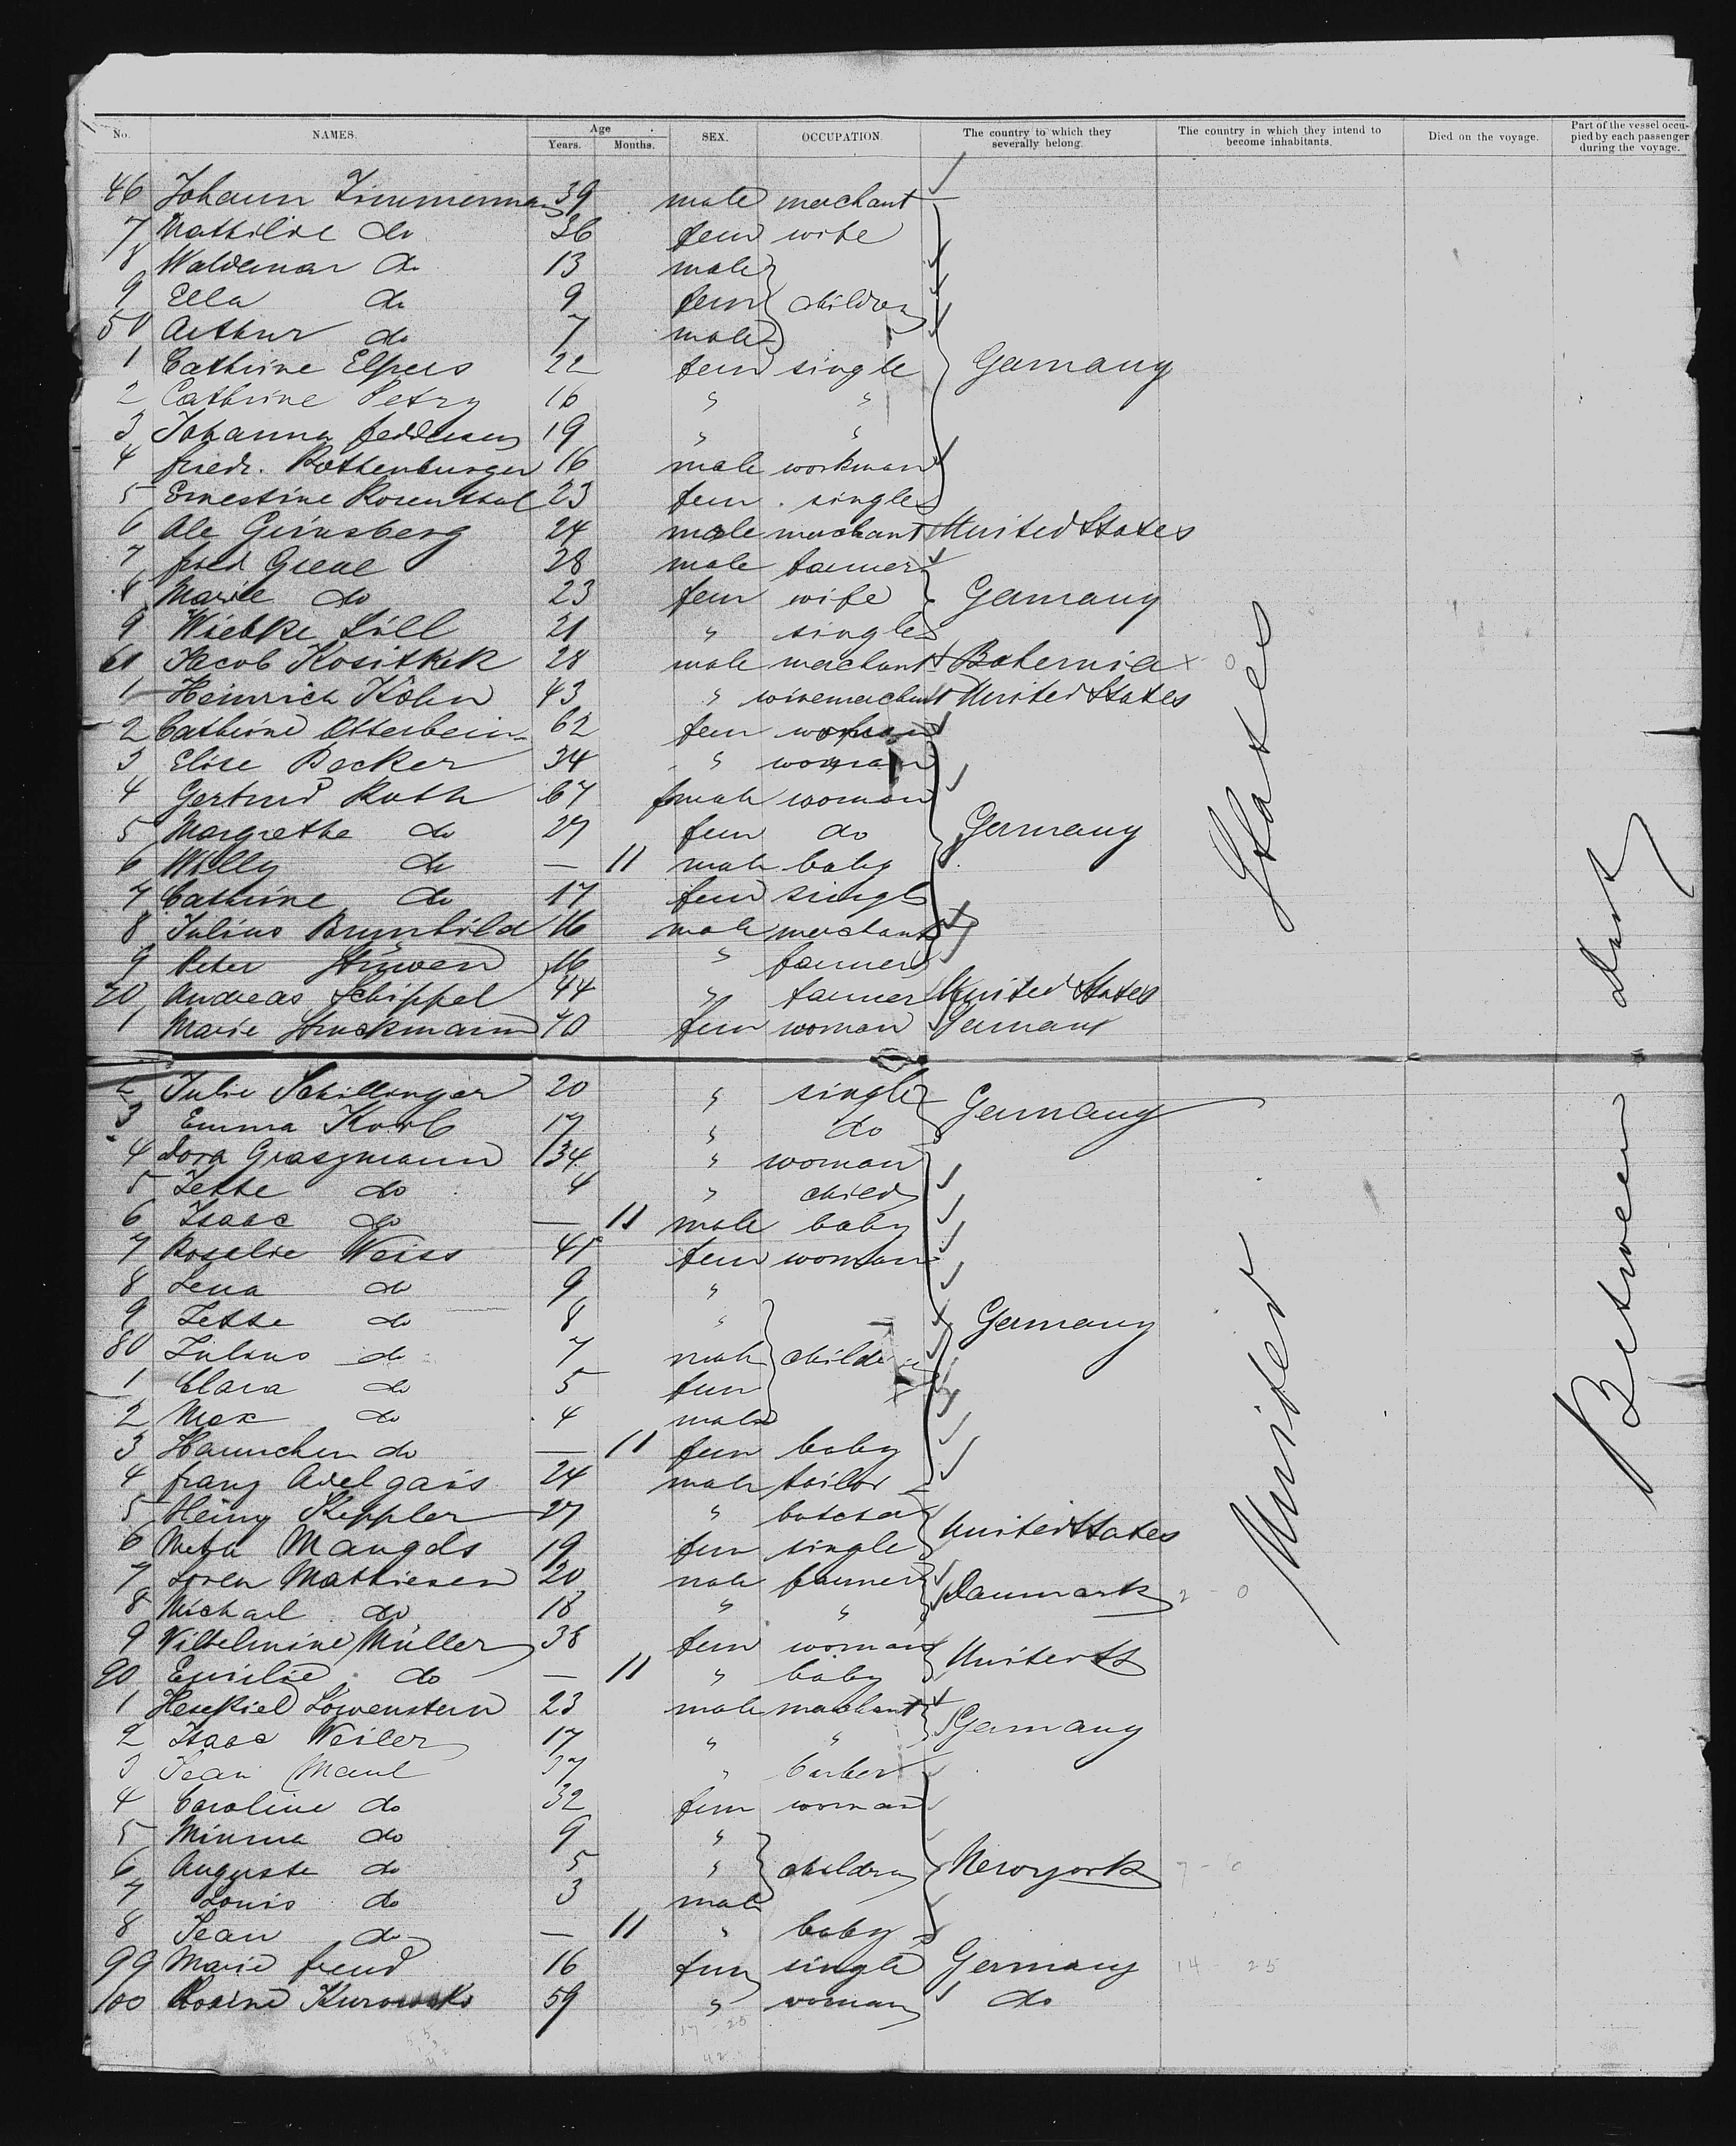 No. NAMES. Age Years. Months. SEX. OCCUPATION. The country to which they severally belong. The country in which they intend to become inhabitants. Died on the voyage. Part of the vessel occupied by each passenger during the voyage.
46 Johann Zimmermann 39 male merchant
7 Mathilde do 36 fem wife
8 Waldemar do 13 male
9 Ella do 9 fem children
50 Arthur do 7 male
1 Cathrine Elpers 22 fem single Germany
2 Cathrine Petry 16 " "
3 Johanna Feddersen 19 " "
4 Friedr. Rothenburger 16 male workman
5 Ernestine Rosenthal 23 fem single
6 Abe Ginsberg 24 male merchant United States
7 28 male farmer
8 Marie do 23 fem wife Germany
9 Wiebke 21 " single
61 Jacob Kositkek 28 male merchant Bohemia
1 Heinrich Köhn 43 " winemerchant United States
2 Cathrine Otterbein 62 fem woman
3 Elise Becker 34 " woman
4 Gertrud Roth 67 female woman
5 Margrethe do 27 fem do Germany
6 Willy do — 11 male baby
7 Cathrine do 17 fem single
8 Julius Brunhild 16 male merchant
9 Peter Strüwen 16 " farmer
70 Andreas Schippel 44 " farmer United States
1 Marie Struckmann 70 fem woman Germany
2 Julie Schillinger 20 " single Germany
3 Emma Korb 17 " do
4 Dora Graszmann 34 " woman
5 Jette do 4 " child
6 Isaac do — 11 male baby
7 Rosalie Weiss 41 fem woman
8 Lena do 9 "
9 Jette do 8 " Germany
80 Julius do 7 male children
1 Clara do 5 fem
2 Max do 4 male
3 Hannchen do — 11 fem baby
4 Franz Adelgais 24 male tailor
5 Heiny Keppler 27 " butcher United States
6 Meta Mangels 19 fem single
7 Soren Mathiesen 20 male farmer Danmark
8 Michael do 18 " "
9 Wilhelmine Müller 38 fem woman United St
90 Emilie do — 11 " baby
1 Hesekiel Löwenstern 23 male merchant Germany
2 Isaac Weiler 17 " "
3 Jean Maul 37 " barber
4 Caroline do 32 fem woman
5 Minna do 9 "
6 Auguste do 5 " children Newyork
7 Louis do 3 male
8 Jean do — 11 " baby
99 Marie Freud 16 fem single Germany
100 Rosine Kurowski 59 " woman do
United States
Between